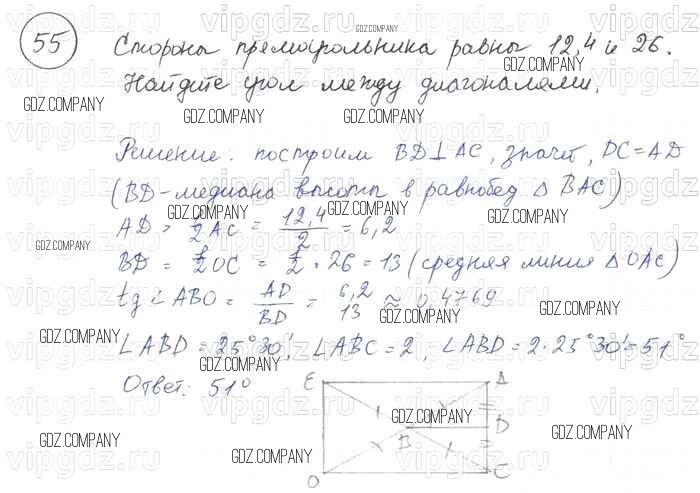 55
Стороны прямоугольника равны 12,4 и 26.
Найдите угол между диагоналями.
Решение: построим BD⊥AC, значит, DC=AD
(BD-медиана высоты в равнобед △ BAC)
AD = 1/2 AC = 12,4/2 = 6,2
BD = 1/2 OC = 1/2 · 26 = 13 (средняя линия △OAC)
tg ∠ABO = AD/BD = 6,2/13 ≈ 0,4769
∠ABD = 25°30', ∠ABC = 2, ∠ABD = 2·25°30' = 51°
Ответ: 51°
E A
B D
O C
GDZ.COMPANY
vipgdz.ru